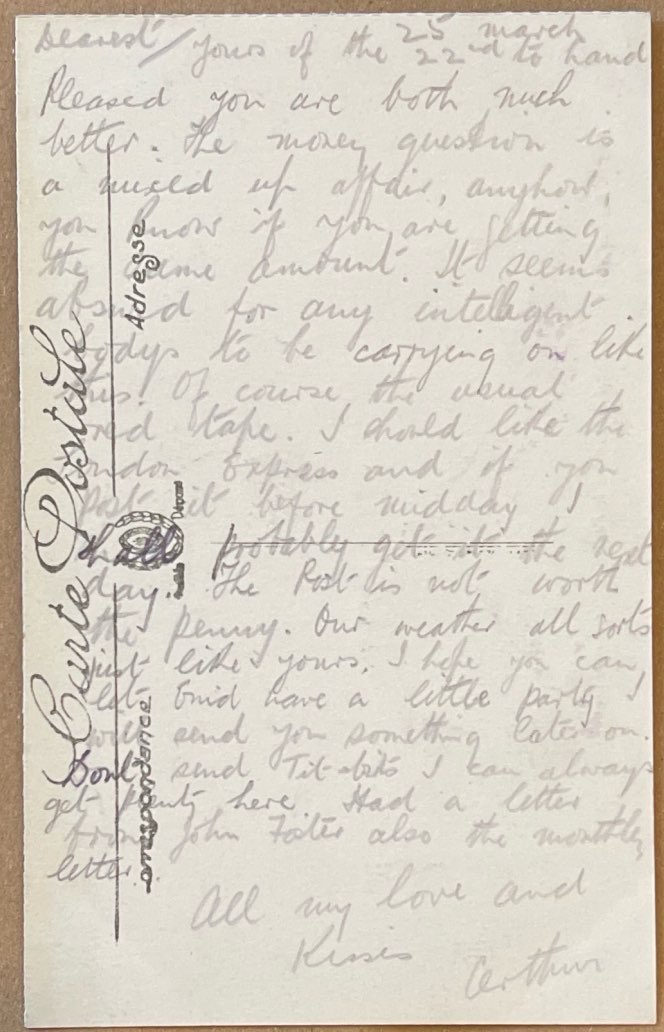 25 march
Dearest / yours of the 22nd to hand
Pleased you are both much
better. The money question is
a mixed up affair, anyhow,
you know if you are getting
the same amount. It seems
absurd for any intelligent
bodys to be carrying on like
this. Of course the usual
red tape. I should like the
London Express and if you
Post it before midday I
shall probably get it the next
day. The Post is not worth
the penny. Our weather all sorts
just like yours. I hope you can
let Enid have a little party I
will send you something later on.
Dont send Tit-bits I can always
get plenty here Had a letter
from John Foster also the monthly
letter.
All my love and
Kisses
Arthur
Carte Postale
Adresse
Correspondance